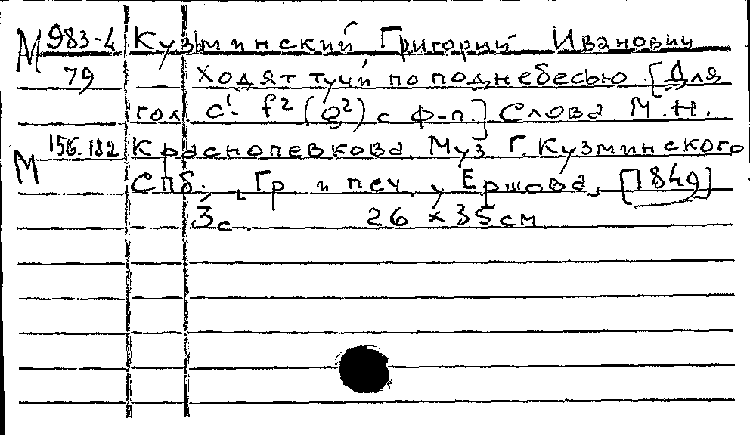 М 983-4 Кузьминский Григорий Иванович
79 Ходят тучи по поднебесью [Для
гол. c¹- f² (g²) с ф-п.] Слова М.Н.
М 156.182 Краснопевкова Муз Г. Кузминского
СПб., Гр и печ. у Ершова, [1849]
3 с. 26 х 35 см